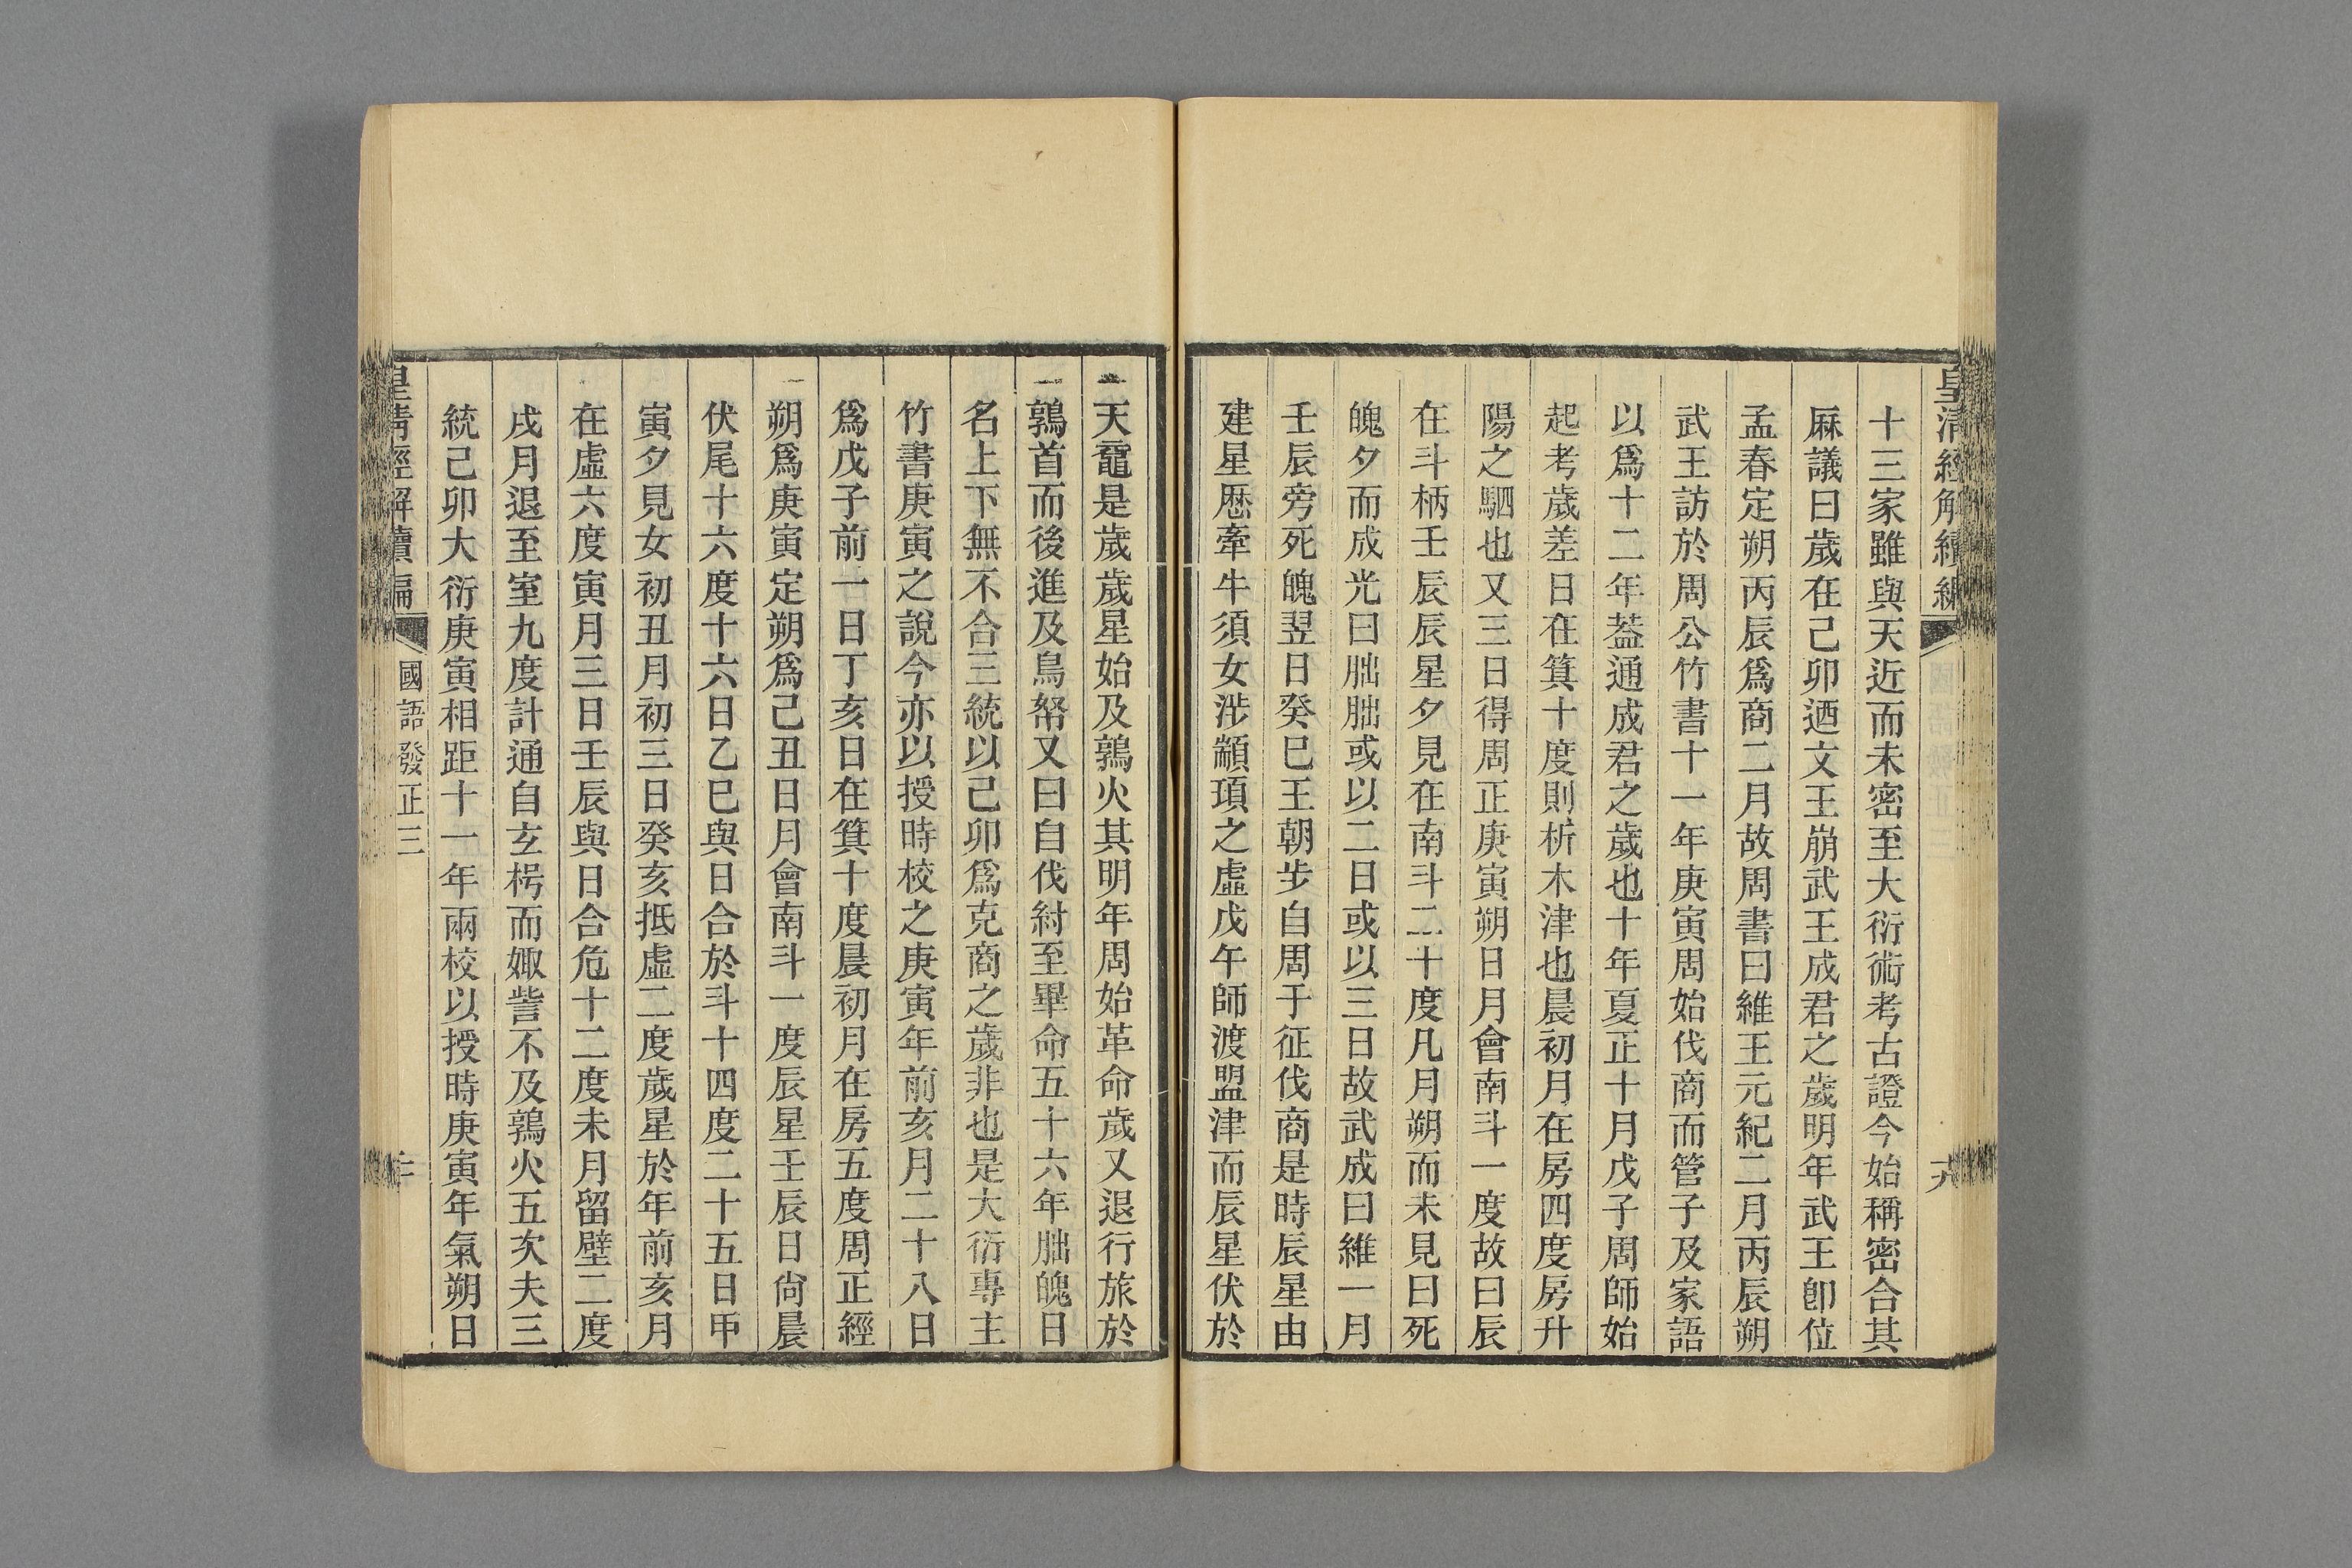 皇清經解續編
十三家雖與天近而未密至大衍術考古證今始稱密合其
厤議曰歲在己卯迺文王崩武王成君之歲明年武王卽位
孟春定朔丙辰爲商二月故周書曰維王元紀二月丙辰朔
武王訪於周公竹書十一年庚寅周始伐商而管子及家語
以爲十二年葢通成君之歲也十年夏正十月戊子周師始
起考歲差日在箕十度則析木津也晨初月在房四度房升
陽之駟也又三日得周正庚寅朔日月會南斗一度故曰辰
在斗柄壬辰辰星夕見在南斗二十度凡月朔而未見曰死
魄夕而成光曰朏朏或以二日或以三日故武成曰維一月
壬辰旁死魄翌日癸巳王朝步自周于征伐商是時辰星由
建星厯牽牛須女涉顓頊之虛戊午師渡盟津而辰星伏於
天黿是歲歲星始及鶉火其明年周始革命歲又退行旅於
鶉首而後進及鳥帑又曰自伐紂至畢命五十六年朏魄日
名上下無不合三統以己卯爲克商之歲非也是大衍專主
竹書庚寅之說今亦以授時校之庚寅年前亥月二十八日
爲戊子前一日丁亥日在箕十度晨初月在房五度周正經
朔爲庚寅定朔爲己丑日月會南斗一度辰星壬辰日尙晨
伏尾十六度十六日乙巳與日合於斗十四度二十五日甲
寅夕見女初丑月初三日癸亥抵虛二度歲星於年前亥月
在虛六度寅月三日壬辰與日合危十二度未月留壁二度
戌月退至室九度計通自玄枵而娵訾不及鶉火五次夫三
統己卯大衍庚寅相距十一年兩校以授時庚寅年氣朔日
皇清經解續編
國語發正三